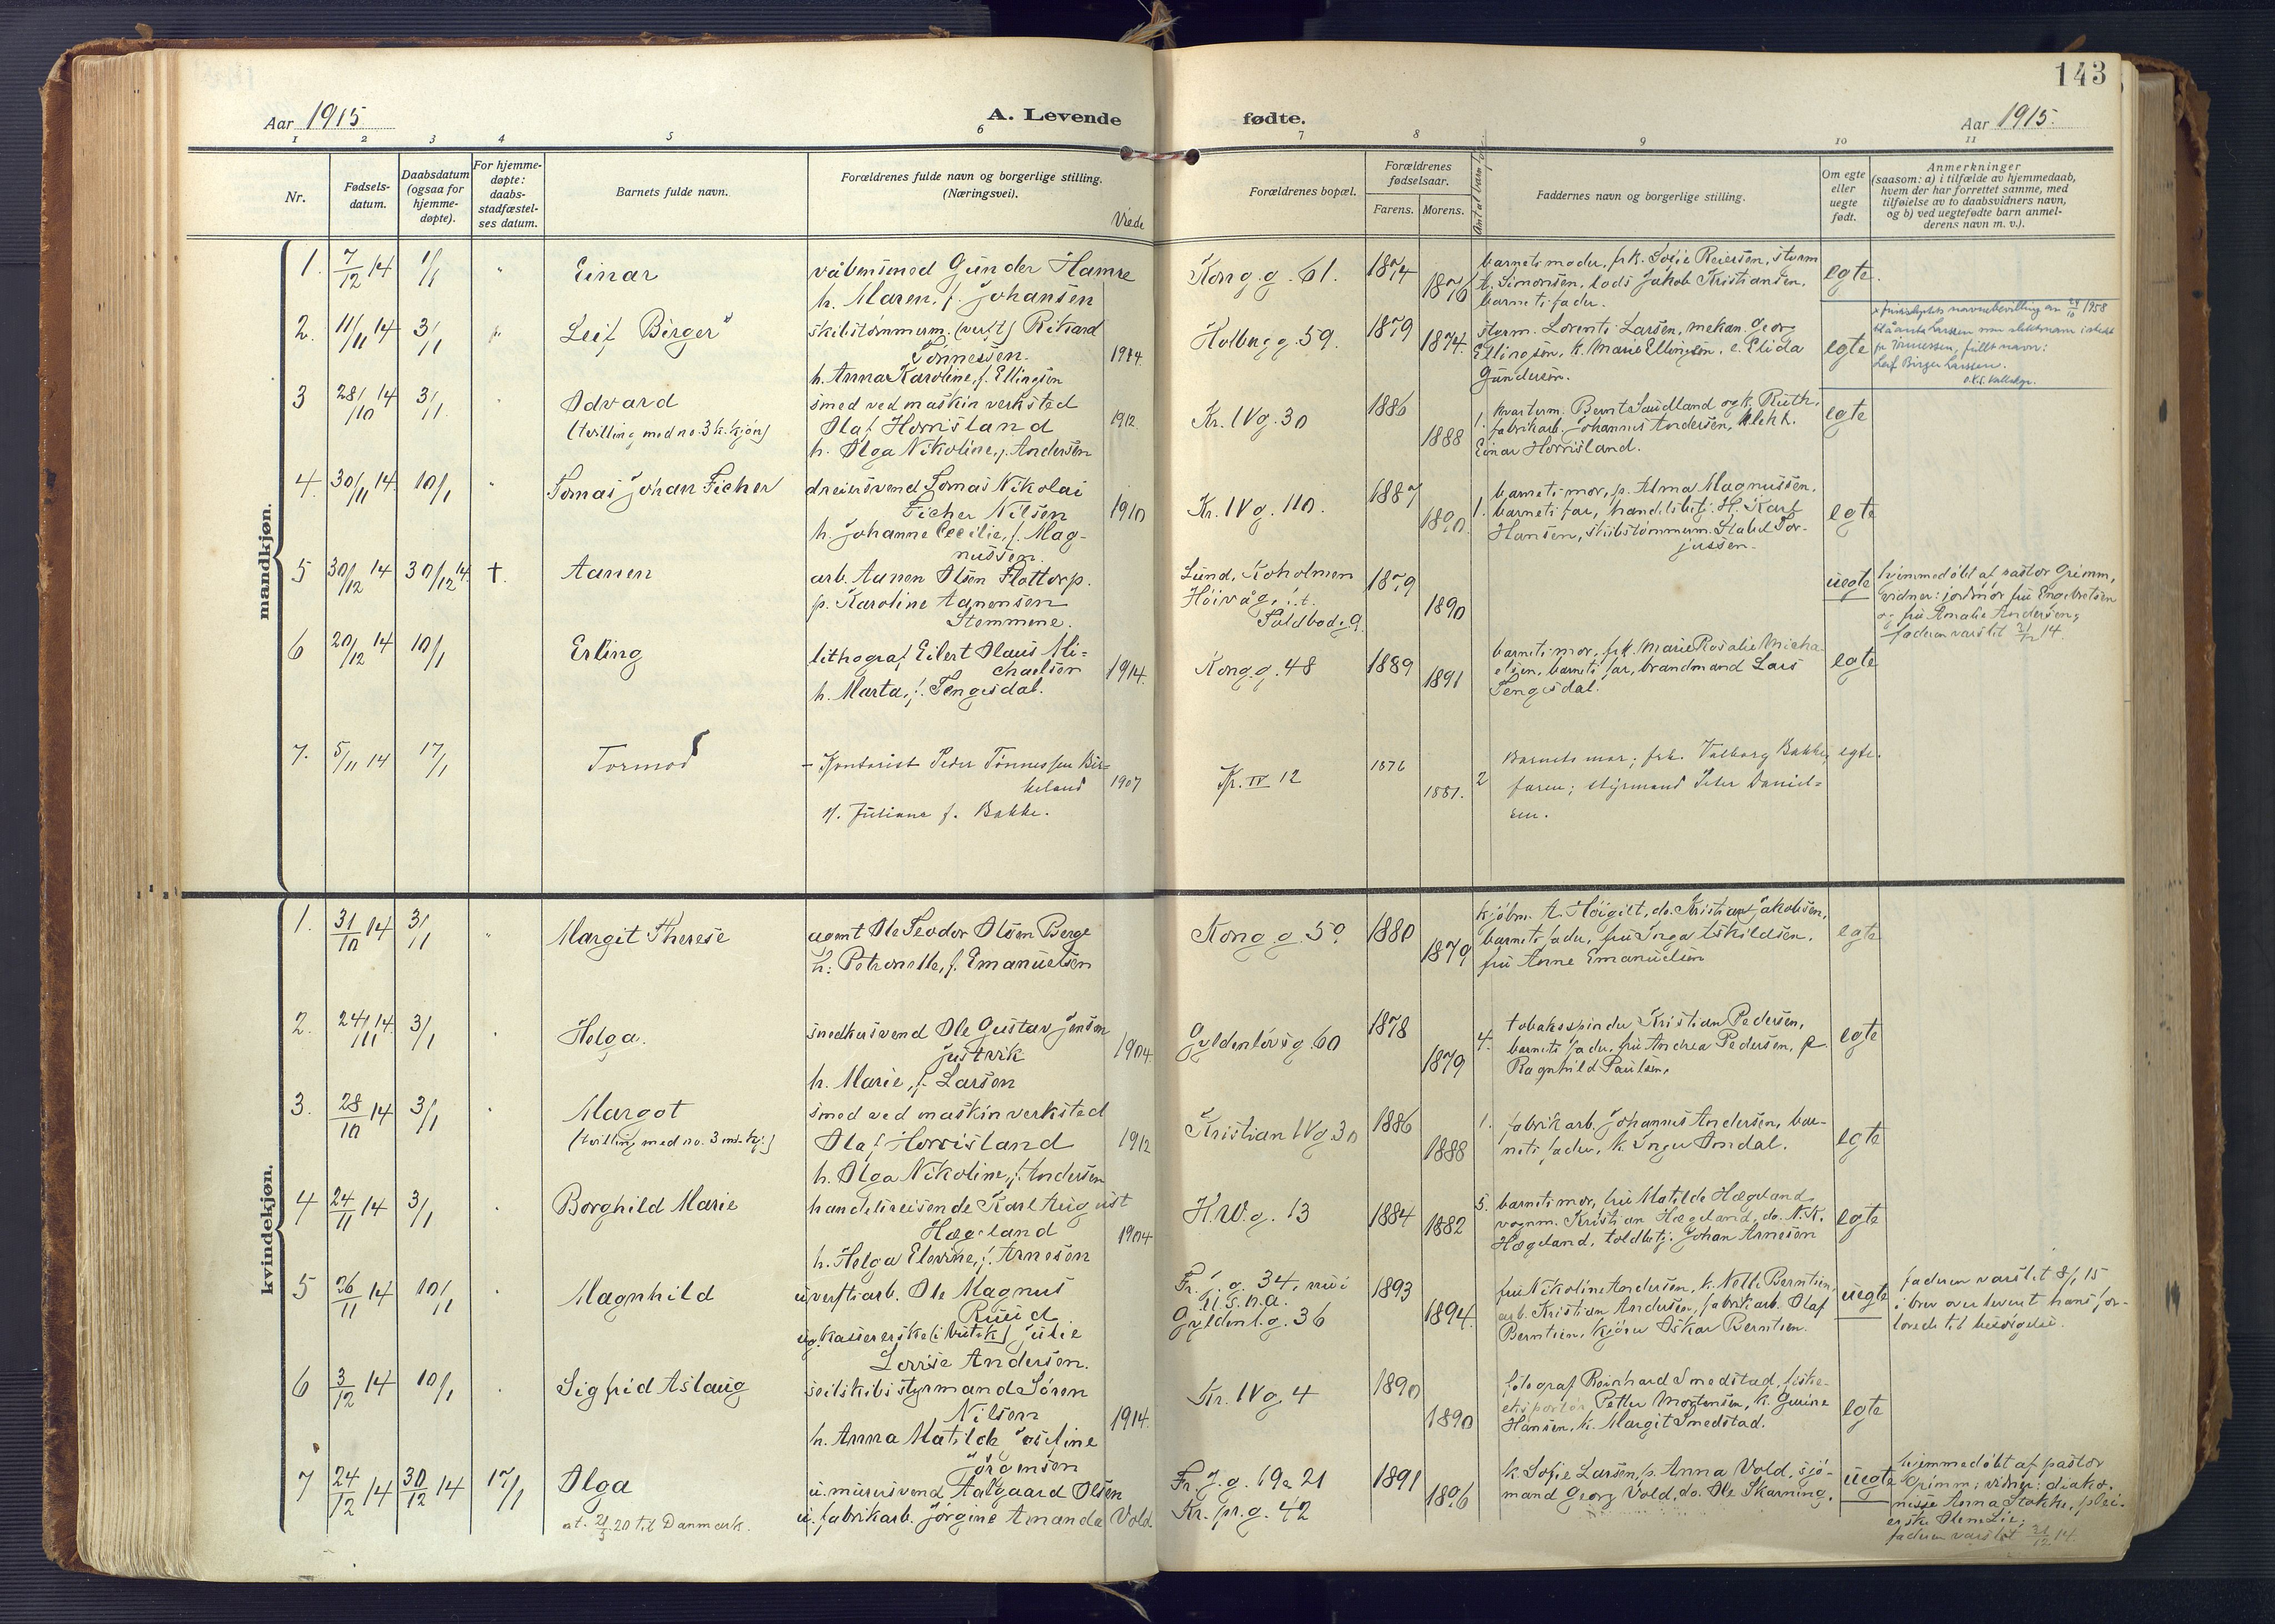 143
Aar 1915
A. Levende
fødte.
Aar 1915.
1 2 3 4 5 6 7 8 9 10 11
Nr.
Fødsels-
datum.
Daabsdatum
(ogsaa for
hjemme-
døpte).
For hjemme-
døpte:
daabs-
stadfæstel-
ses datum.
Barnets fulde navn.
Forældrenes fulde navn og borgerlige stilling.
(Næringsvei).
Viede
Forældrenes bopæl.
Forældrenes
fødselsaar.
Farens. Morens.
Antal barn før.
Faddernes navn og borgerlige stilling.
Om egte
eller
uegte
født.
Anmerkninger
(saasom: a) i tilfælde av hjemmedaab,
hvem der har forrettet samme, med
tilføielse av to daabsvidners navn,
og b) ved uegtefødte barn anmel-
derens navn m. v.).
mandkjøn.
1. 7/12 14 1/1 " Einar
våbensmed Gunder Hamre
h. Maren, f. Johansen
Kong.g. 61. 1874 1876
barnets moder, frk. Sofie Reiersen, styrm
T. Simonsen, lods Jakob Kristiansen,
barnets fader.
egte.
2. 11/11 14 3/1 Leif Birger
skibstømmerm. (verft) Rikard
Tønnessen.
h. Anna Karoline, f. Ellingsen
1914.
Holberg.g. 59. 1879 1874.
styrm. Lorents Larsen, mekan. Georg
Ellingsen, k. Marie Ellingsen, e. Elida
Gundersen.
egte
navnebevilling av 1958
Larssen som slektsnavn i stedet
for Tønnessen, fullt navn:
Leif Birger Larssen.
3 28/10 14 3/1 " Odvard
(tvilling med no. 3 k. kjøn)
smed ved maskinverksted
Olaf Horrisland
h. Olga Nikoline, f. Andersen
1912.
Kr. IVg. 30 1886 1888 1.
kvarterm. Bernt Saudland og k. Ruth,
fabrikarb. Johannes Andersen,
Einar Horrisland.
egte
4. 30/11 14. 10/1 " Tomas Johan Ficher
dreiersvend Tomas Nikolai
Ficher Nilsen
h. Johanne Cecilie, f. Mag-
nussen.
1910
Kr. IVg. 110. 1887 1890 1.
barnets mor, p. Alma Magnussen,
barnets far, handelsbetj. H. Karl
Hansen, skibstømmerm. Tor-
jussen.
egte
5 30/12 14 30/12 14. †. Aanen
arb. Aanen Olsen Flottorp.
p. Karoline Aanensen
Stemmene.
Lund, Koholmen
Höivåg, i.t.
Toldbod.g. 9. 1879 1890
uegte
hjemmedöbt af pastor Grimm,
vidner: jordmor fru Engebretsen
og fru Amalie Andersen;
faderen varslet 31/12 14.
6 20/12 14 10/1 Erling
lithograf Eilert Olaus Mi-
chaelsen
h. Marta, f. Tengesdal.
1914.
Kong.g. 48 1889 1891
barnets mor, frk. Marie Rosalie Micha-
elsen, barnets far, brandmand Lars
Tengesdal.
egte
7. 5/11 14 17/1 Tormod
Kontorist Peder Tønnessen Bir-
keland
H. Juliane f. Bakke.
1907
Kr. IV 12 1876 1881. 2
Barnets mor; frk. Valborg Bakke,
faren; styrmand Peter Daniel-
sen.
egte.
kvindekjøn.
1. 31/10 14 3/1 " Margit Therese
agent Ole Teodor Olsen Berge
h. Petronelle, f. Emanuelsen
Kong.g. 59 1880 1879
kjöbm. A. Höigilt, do. Kristian Jakobsen,
barnets fader, fru Inga Eskildsen,
fru Anne Emanuelsen
egte
2. 24/11 14. 3/1 Helga.
snedkersvend Ole Gustav Jensen
Justvik
h. Marie, f. Larsen
1904
Gyldenlövsg. 60 1878 1879 4.
tobaksspinder Kristian Pedersen,
barnets fader, fru Andrea Pedersen, p
Ragnhild Paulsen.
egte
3. 28/10 14 3/1 Margot
(tvilling med no. 3 m. kj.)
smed ved maskinverksted
Olaf Horrisland
h. Olga Nikoline, f. Andersen
1912
Kristian IVg. 30 1886 1888 1.
fabrikarb. Johannes Andersen, bar-
nets fader, k. Inger Omdal.
egte
4 24/11 14 3/1 Borghild Marie
handelsreisende Karl August
Hægeland
h. Helga Elevine, f. Arnesen
1904
K.IV.g. 13 1884 1882 5.
barnets mor, fru Matilde Hægeland,
vognm. Kristian Hægeland, do. N.K.
Hægeland, toldbetj. Johan Arnesen
egte
5 26/11 14 10/1 Magnhild
u. verftsarb. Ole Magnus
Ruud
ug. kassererske (i butik) Julie
Lovise Andersen.
Fr. j. g. 34, nu i
U.S.n.a.
Gyldenl.g. 36 1893 1894.
fru Nikoline Andersen, k. Nelli Berntsen,
arb. Kristian Andersen, fabrikarb. Olaf
Berntsen, kjörer Oskar Berntsen.
uegte
faderen varslet 8/1 15
i brev oversendt hans for-
lovede til besörgelse.
6 3/12 14 10/1 Sigfrid Aslaug
seilskibsstyrmand Sören
Nilsen
h. Anna Matilde Josefine
Jörgensen
1914.
Kr. IVg. 4 1890 1890
fotograf Reinhard Smedstad, fiske-
eksportør Petter Mortensen, k. Gurine
Hansen, k. Margit Smedstad.
egte
7 24/12 14 30/12 14 17/1 Olga
at. 21/5 20 til Danmark.
u. murersvend Aalgaard Olsen
u. fabrikarb. Jörgine Amanda Vold
Fr. J. g. 19a 21
Kr. pr.g. 42 1891 1896
k. Sofie Larsen, p. Anna Vold, sjö-
mand Georg Vold, do. Ole Skarning.
uegte
hjemmedöbt af pastor
Grimm; vidner: diako-
nisse Anna Stokke, plei-
erske Olene Lie;
faderen varslet 31/12 14.